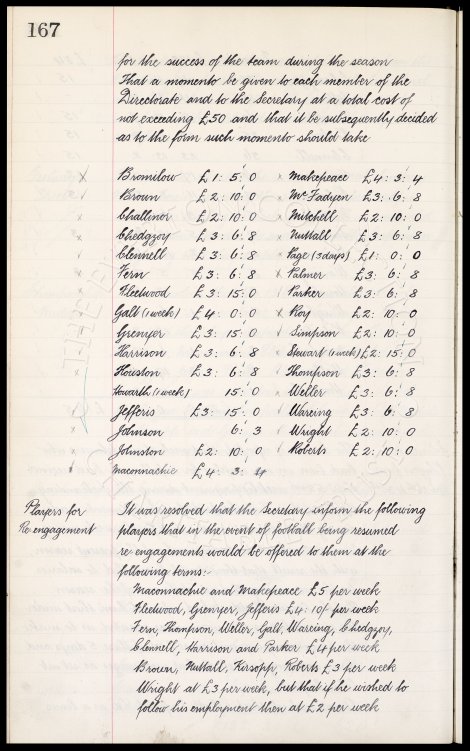 167
for the success of the team during the season
That a momento be given to each member of the
Directorate and to the Secretary at a total cost of
not exceeding £50 and that it be subsequently decided
as to the form such momento should take
Bromilow £1: 5: 0 x Makepeace £4: 3: 4
Brown £2: 10: 0 x McFadyen £3: 6: 8
Challinor £2: 10: 0 x Mitchell £2: 10: 0
Chedgzoy £3: 6: 8 x Nuttall £3: 6: 8
Clennell £3: 6: 8 x Page (3 days) £1: 0: 0
Fern £3: 6: 8 x Palmer £3: 6: 8
Fleetwood £3: 15: 0 Parker £3: 6: 8
Galt (1 week) £4: 0: 0 Roy £2: 10: 0
Grenyer £3: 15: 0 Simpson £2: 10: 0
Harrison £3: 6: 8 Stewart (1 week) £2: 15: 0
Houston £3: 6: 8 Thompson £3: 6: 8
Howarth (1 week) 15: 0 Weller £3: 6: 8
Jefferis £3: 15: 0 Wareing £3: 6: 8
Johnson 6: 3 Wright £2: 10: 0
Johnston £2: 10: 0 Roberts £2: 10: 0
Maconnachie £4: 3: 4
Players for
Re-engagement
It was resolved that the Secretary inform the following
players that in the event of football being resumed
re-engagements would be offered to them at the
following terms:-
Maconnachie and Makepeace £5 per week
Fleetwood, Grenyer, Jefferis £4: 10/- per week
Fern, Thompson, Weller, Galt, Wareing, Chedgzoy,
Clennell, Harrison and Parker £4 per week
Brown, Nuttall, Kirsopp, Roberts £3 per week
Wright at £3 per week, but that if he wished to
follow his employment then at £2 per week